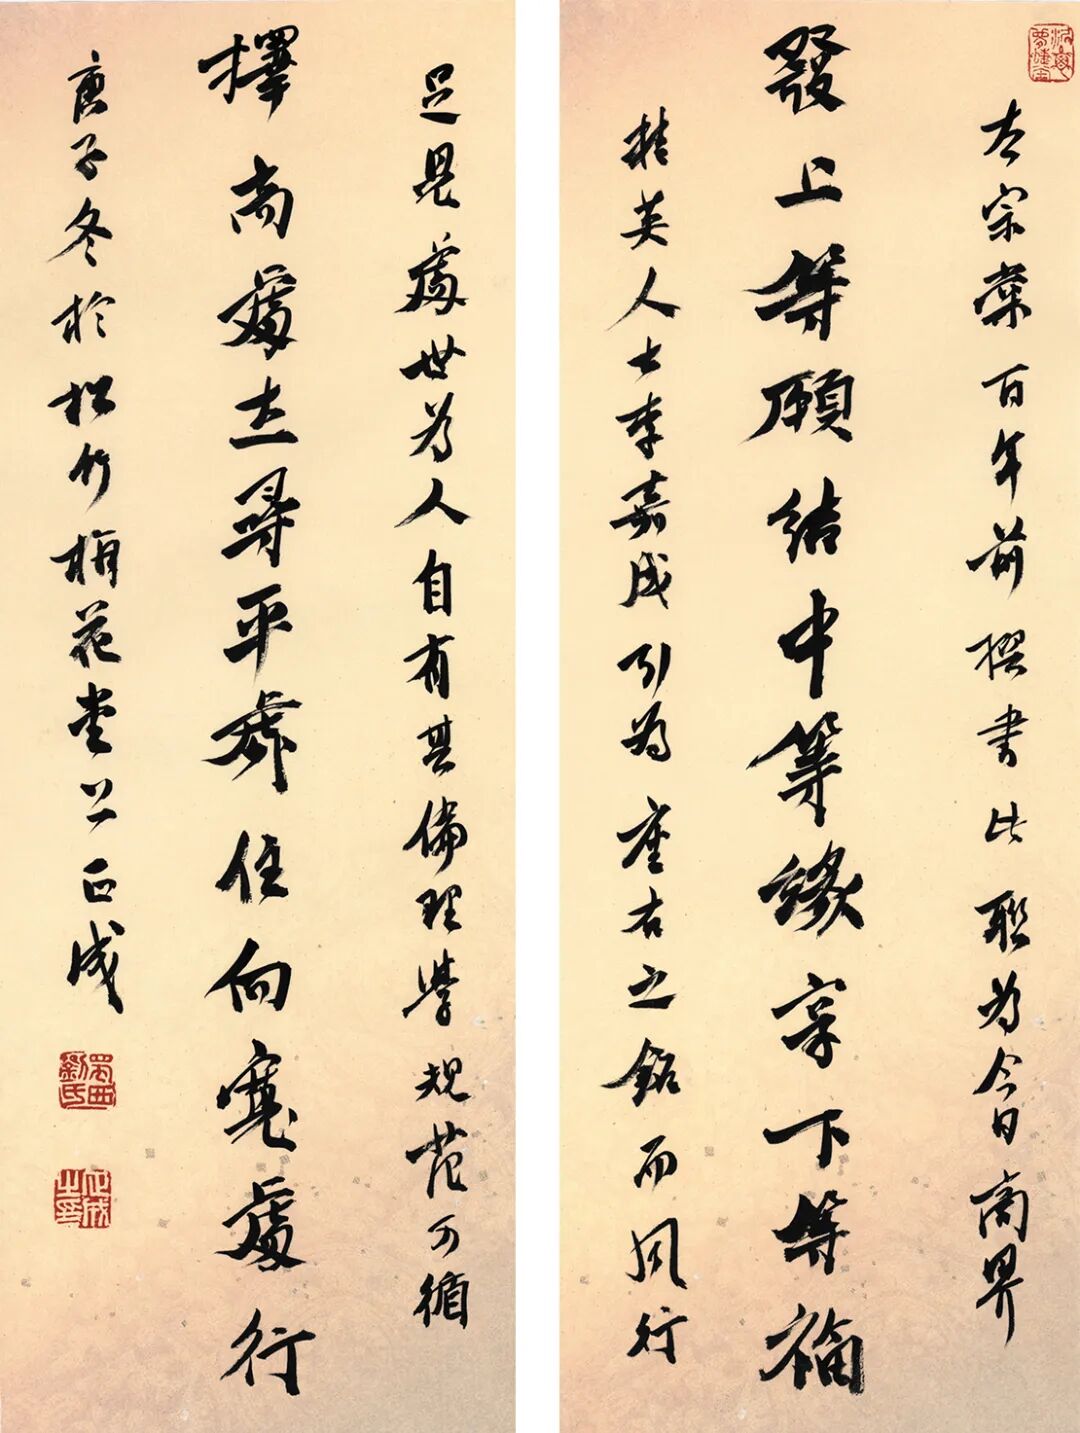 左宗棠百年前撰書此聯為今日商界
發上等願結中等緣享下等福
精英人士李嘉成引為座右之銘而風行
足見處世為人自有其倫理學規范可循
擇高處立尋平處住向寬處行
庚子冬於松竹梅花堂上正成
蜀西劉氏
正成之印